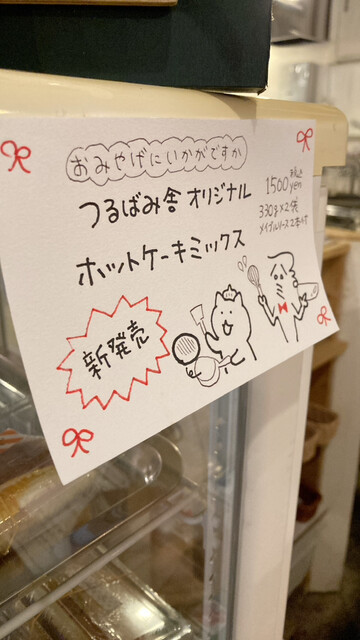 おみやげにいかがですか
つるばみ舎 オリジナル
ホットケーキミックス
1560 税込 yen
330g×2袋
メイプルソース2本付
新発売